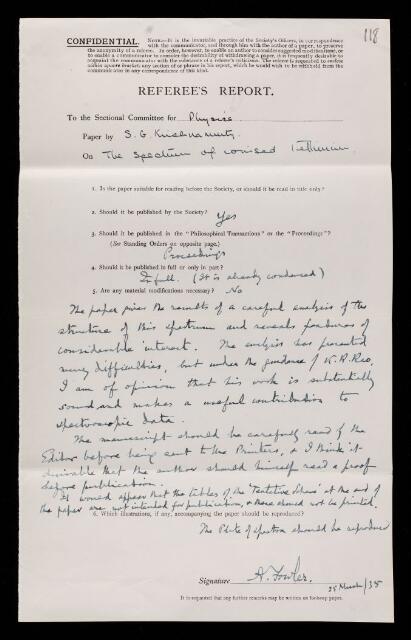 118
CONFIDENTIAL. NOTE.—It is the invariable practice of the Society's Officers, in correspondence
with the communicator, and through him with the author of a paper, to preserve
the anonymity of a referee. In order, however, to enable an author to consider suggested modifications, or
to enable a communicator to consider the desirability of withdrawing a paper, it is frequently desirable to
acquaint the communicator with the substance of a referee's criticisms. The referee is requested to enclose
within square brackets any section of or phrase in his report, which he would wish to be withheld from the
communicator in any correspondence of this kind.
REFEREE'S REPORT.
To the Sectional Committee for Physics
Paper by S. G. Krishnamurty
On The Spectrum of ionised Tellurium
1. Is the paper suitable for reading before the Society, or should it be read in title only?
2. Should it be published by the Society? Yes
3. Should it be published in the "Philosophical Transactions" or the "Proceedings"?
(See Standing Orders on opposite page.)
Proceedings
4. Should it be published in full or only in part?
In full. (It is already condensed)
5. Are any material modifications necessary? No
The paper gives the results of a careful analysis of the
structure of this spectrum and reveals features of
considerable interest. The analysis has presented
many difficulties, but under the guidance of K. R. Rao,
I am of opinion that his work is substantially
sound and makes a useful contribution to
spectroscopic data.
The manuscript should be carefully read by the
Editor before being sent to the Printers, & I think it
desirable that the author should himself read a proof
before publication.
It would appear that the tables of the 'Tentative Scheme' at the end of
the paper are not intended for publication, & these should not be printed.
6. Which illustrations, if any, accompanying the paper should be reproduced?
The Plate of spectra should be reproduced
Signature A. Fowler.
28 March/35
It is requested that any further remarks may be written on foolscap paper.